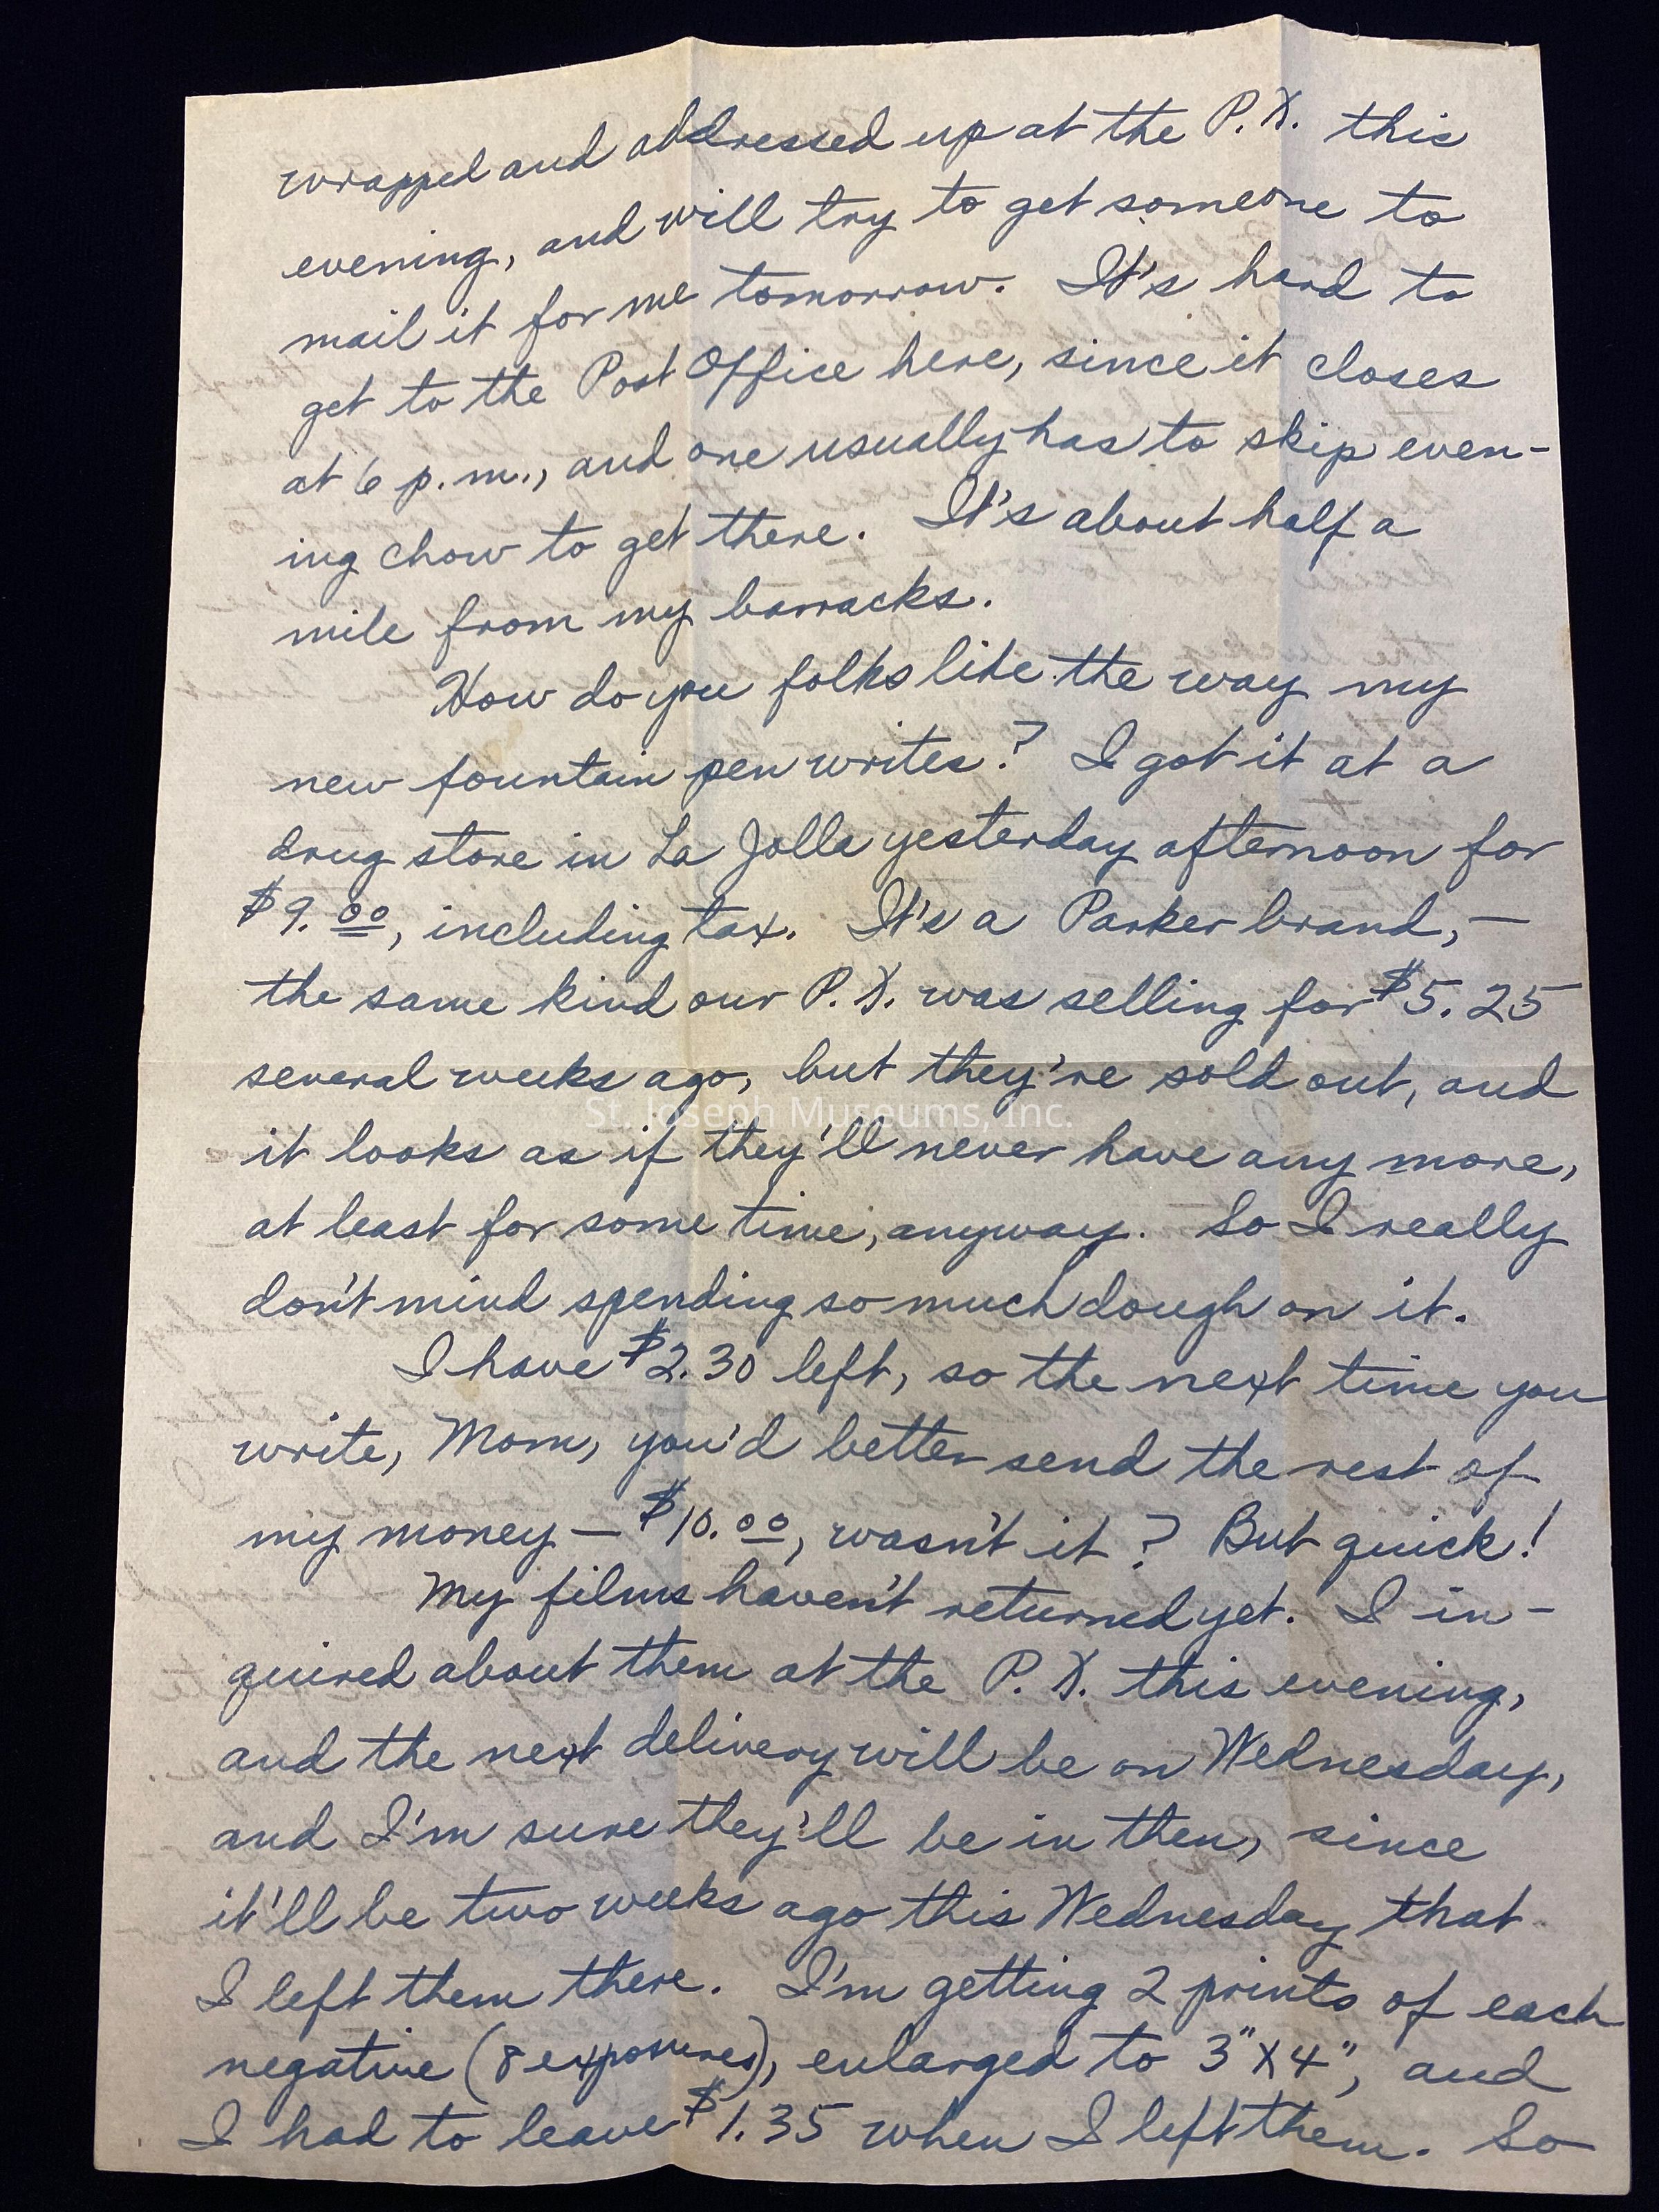 wrapped and addressed up at the P.X. this
evening, and will try to get someone to
mail it for me tomorrow. It's hard to
get to the Post Office here, since it closes
at 6 p.m., and one usually has to skip even-
ing chow to get there. It's about half a
mile from my barracks.
How do you folks like the way my
new fountain pen writes? I got it at a
drug store in La Jolla yesterday afternoon for
$9.00, including tax. It's a Parker brand,—
the same kind our P.X. was selling for $5.25
several weeks ago, but they're sold out, and
St. Joseph Museums, Inc.
it looks as if they'll never have any more,
at least for some time, anyway. So I really
don't mind spending so much dough on it.
I have $2.30 left, so the next time you
write, Mom, you'd better send the rest of
my money — $10.00, wasn't it? But quick!
My films haven't returned yet. I in-
quired about them at the P.X. this evening,
and the next delivery will be on Wednesday,
and I'm sure they'll be in then, since
it'll be two weeks ago this Wednesday that
I left them there. I'm getting 2 prints of each
negative (8 exposures), enlarged to 3" X 4", and
I had to leave $1.35 when I left them. So